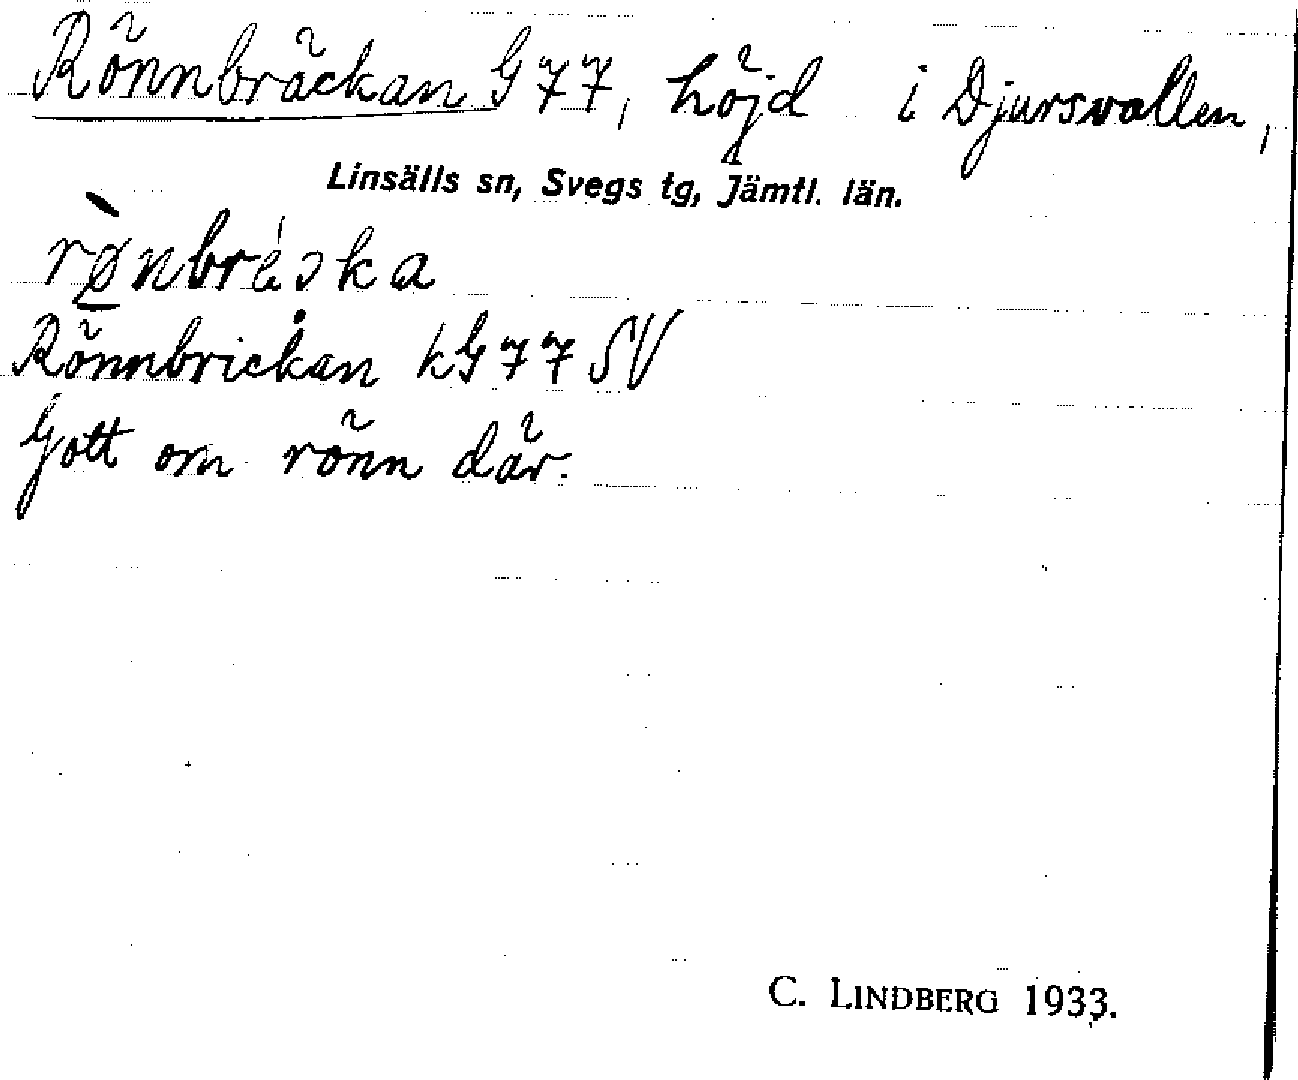 Rönnbräckan G 77, höjd i Djursvallen,
Linsälls sn, Svegs tg, Jämtl. län.
Rönnbrickan kG 77 SV
Gott om rönn där.
C. LINDBERG 1933.